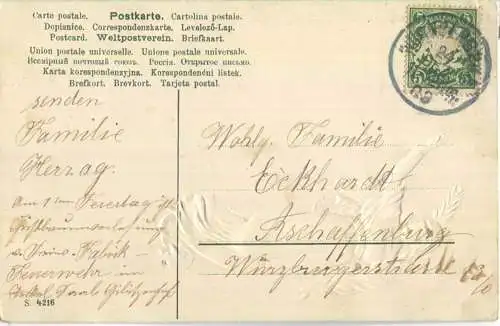 Carte postale. Postkarte. Cartolina postale.
Dopisnice. Correspondenzkarte. Levelező-Lap.
Postcard. Weltpostverein. Briefkaart.
Union postale universelle. Unione postale universale.
Всемірный почтовый союзъ. Россія. Открытое письмо.
Karta korespondenzyjna. Korespondenéni listek.
Brefkort. Brevkort. Tarjeta postal.
senden
Familie
Herzog.
Am 1ten Feiertag ist
Christbaumverlosung
Fabrik-
Feuerwehr im
Saale
S. 4216
Wohlg. Familie
Eckhardt
Aschaffenburg
Würzburgerstrasse
5